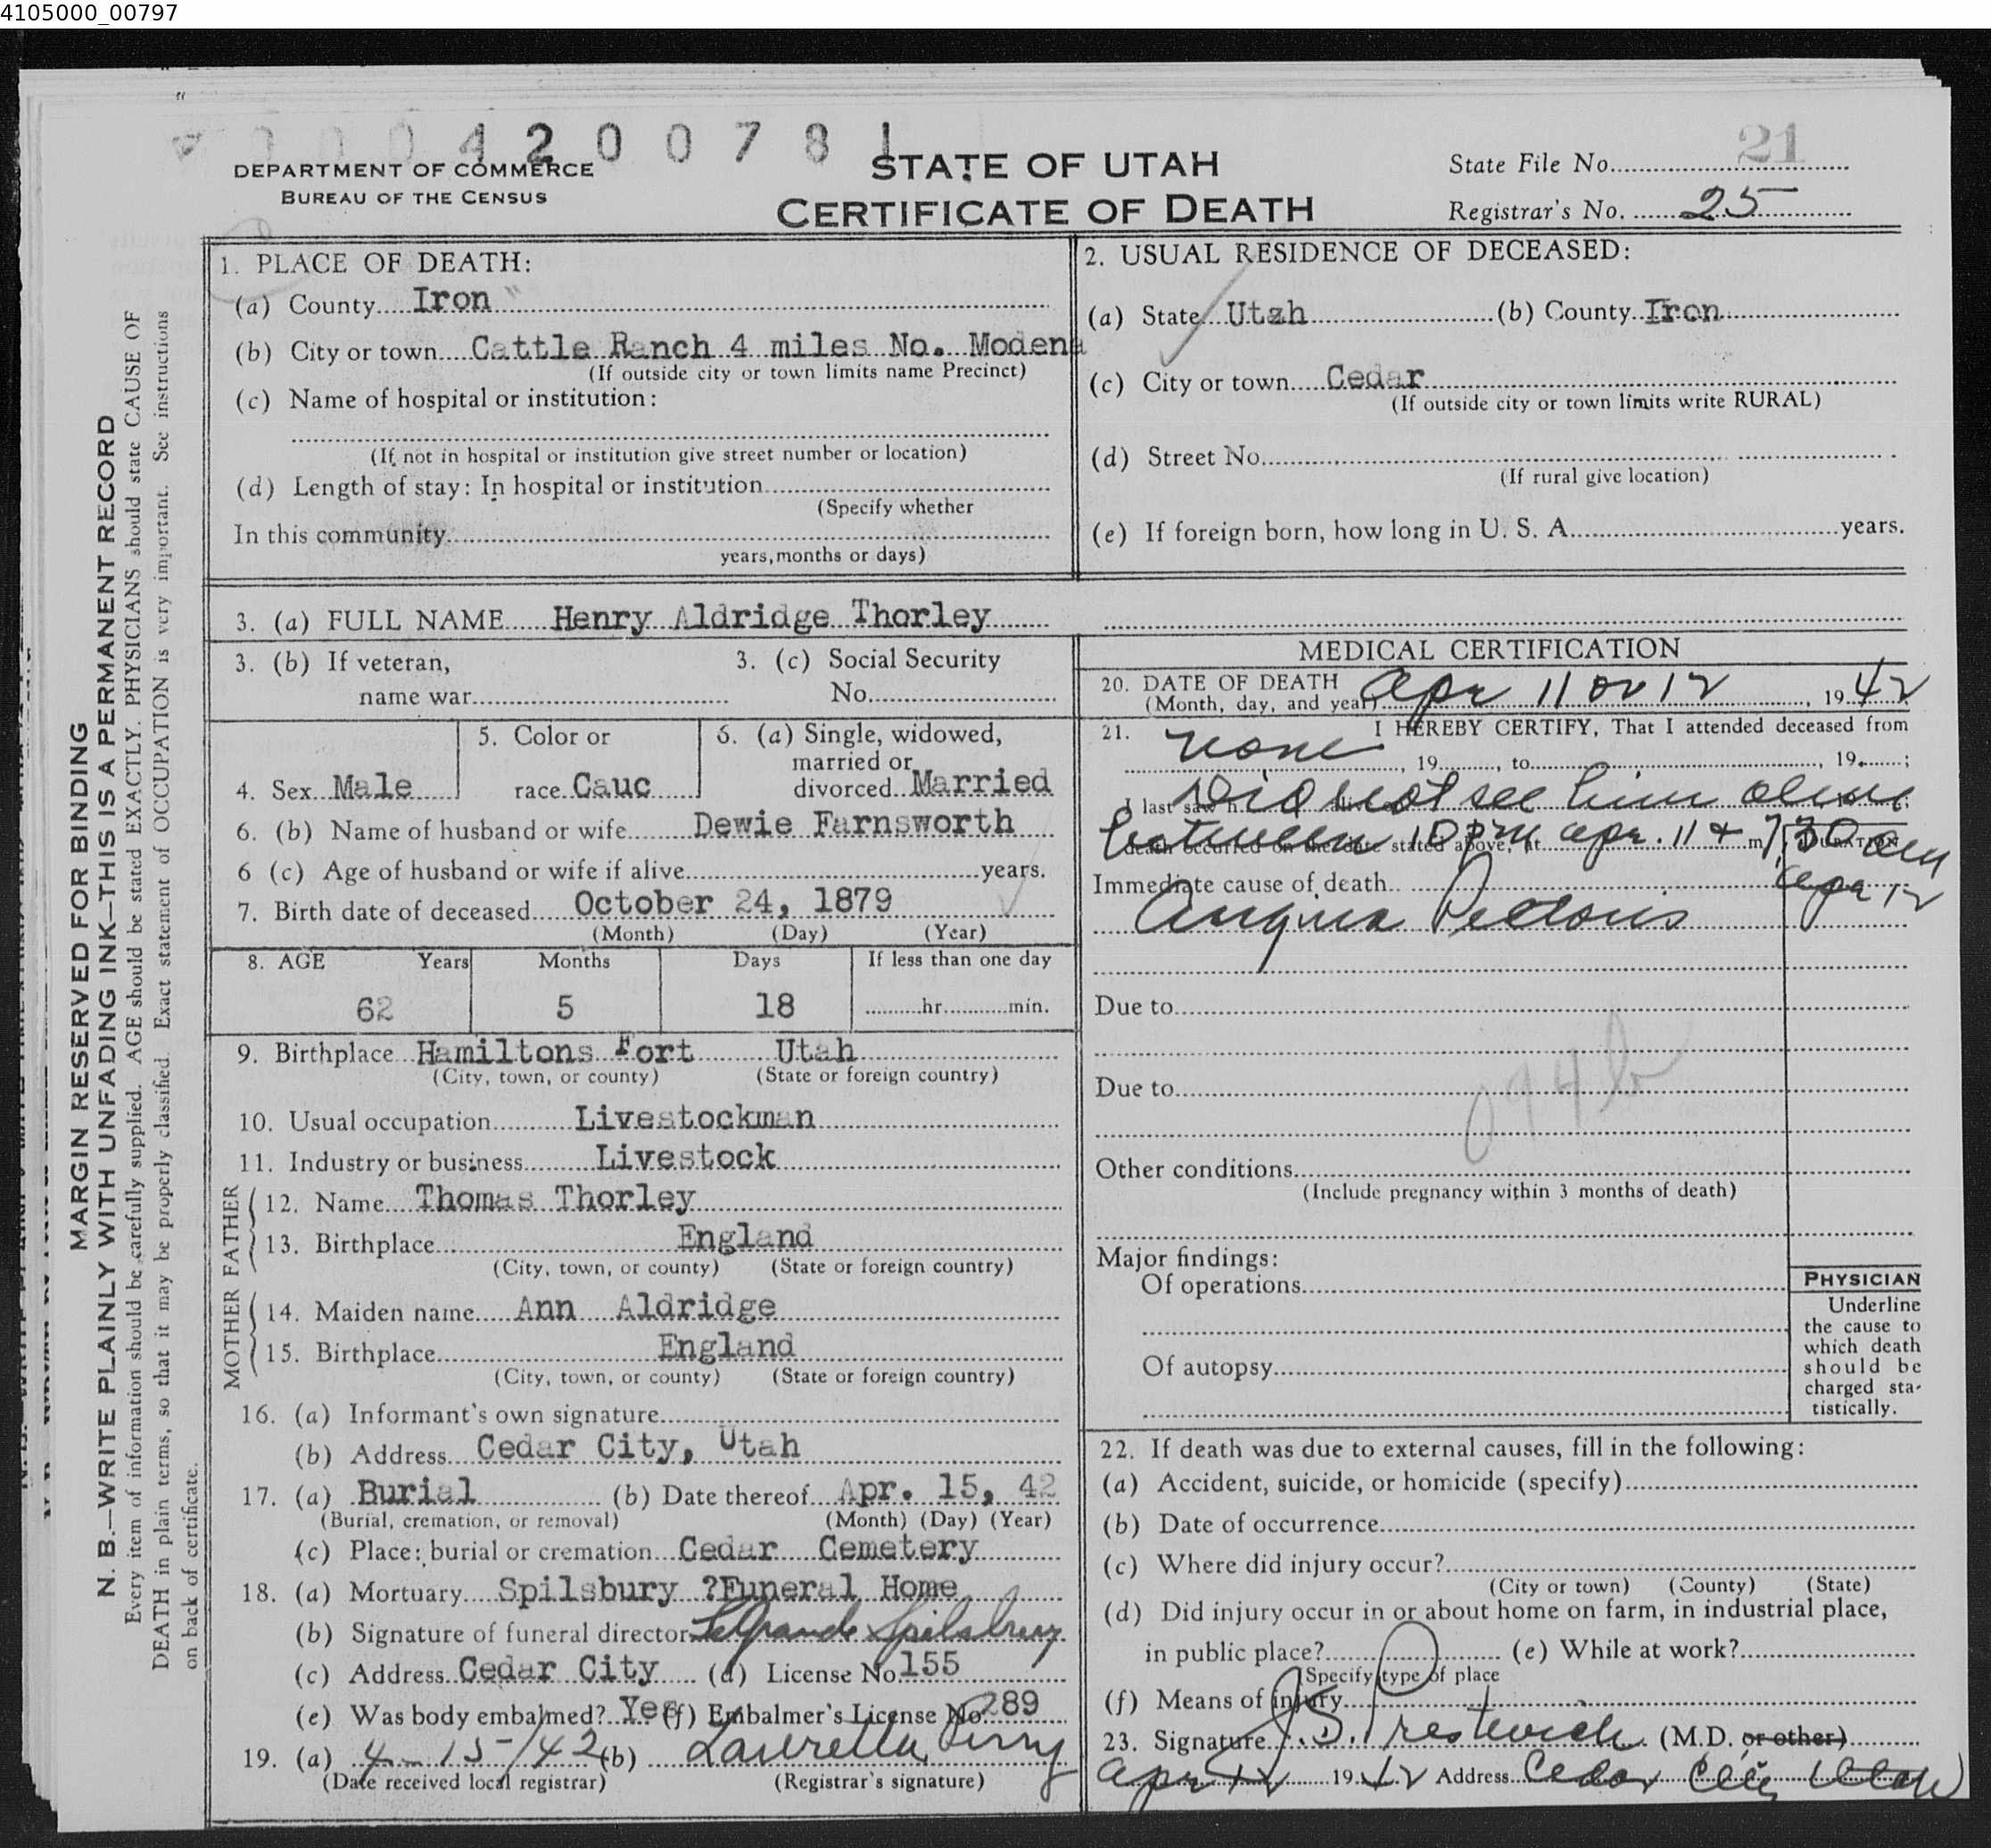 4105000_00797
4 2 0 0 7 8 1
DEPARTMENT OF COMMERCE
BUREAU OF THE CENSUS
STATE OF UTAH
CERTIFICATE OF DEATH
State File No. 21
Registrar's No. 25
1. PLACE OF DEATH:
(a) County Iron
(b) City or town Cattle Ranch 4 miles No. Modena
(If outside city or town limits name Precinct)
(c) Name of hospital or institution:
(If not in hospital or institution give street number or location)
(d) Length of stay: In hospital or institution
(Specify whether
In this community
years, months or days)
2. USUAL RESIDENCE OF DECEASED:
(a) State Utah (b) County Iron
(c) City or town Cedar
(If outside city or town limits write RURAL)
(d) Street No.
(If rural give location)
(e) If foreign born, how long in U. S. A. years.
3. (a) FULL NAME Henry Aldridge Thorley
3. (b) If veteran, 3. (c) Social Security
name war No.
5. Color or 6. (a) Single, widowed,
married or
4. Sex Male race Cauc divorced Married
6. (b) Name of husband or wife Dewie Farnsworth
6 (c) Age of husband or wife if alive years.
7. Birth date of deceased October 24, 1879
(Month) (Day) (Year)
8. AGE Years Months Days If less than one day
62 5 18 hr. min.
9. Birthplace Hamiltons Fort Utah
(City, town, or county) (State or foreign country)
10. Usual occupation Livestockman
11. Industry or business Livestock
FATHER
12. Name Thomas Thorley
13. Birthplace England
(City, town, or county) (State or foreign country)
MOTHER
14. Maiden name Ann Aldridge
15. Birthplace England
(City, town, or county) (State or foreign country)
16. (a) Informant's own signature
(b) Address Cedar City, Utah
17. (a) Burial (b) Date thereof Apr. 15, 42
(Burial, cremation, or removal) (Month) (Day) (Year)
(c) Place: burial or cremation Cedar Cemetery
18. (a) Mortuary Spilsbury ?Funeral Home
(b) Signature of funeral director LeGrande Spilsbury
(c) Address Cedar City (d) License No. 155
(e) Was body embalmed? Yes (f) Embalmer's License No. 289
19. (a) 4-15-/42 (b) Laurella Perry
(Date received local registrar) (Registrar's signature)
MEDICAL CERTIFICATION
20. DATE OF DEATH Apr 11 or 12, 1942
(Month, day, and year)
21. I HEREBY CERTIFY, That I attended deceased from
none, 19 , to , 19 ;
I last saw h Did not see him alive
between 10 PM apr. 11 & 7:30 am
death occurred on the date stated above, at m. DURATION
Immediate cause of death Apr 12
Angina Pectoris
Due to
Due to
094b
Other conditions
(Include pregnancy within 3 months of death)
Major findings:
Of operations
Of autopsy
PHYSICIAN
Underline
the cause to
which death
should be
charged sta-
tistically.
22. If death was due to external causes, fill in the following:
(a) Accident, suicide, or homicide (specify)
(b) Date of occurrence
(c) Where did injury occur?
(City or town) (County) (State)
(d) Did injury occur in or about home on farm, in industrial place,
in public place? (e) While at work?
(Specify type of place
(f) Means of injury
23. Signature J.S. Prestwich (M.D. or other)
Apr 12 1942 Address Cedar City Utah
MARGIN RESERVED FOR BINDING
N. B.—WRITE PLAINLY WITH UNFADING INK—THIS IS A PERMANENT RECORD
Every item of information should be carefully supplied. AGE should be stated EXACTLY. PHYSICIANS should state CAUSE OF
DEATH in plain terms, so that it may be properly classified. Exact statement of OCCUPATION is very important. See instructions
on back of certificate.